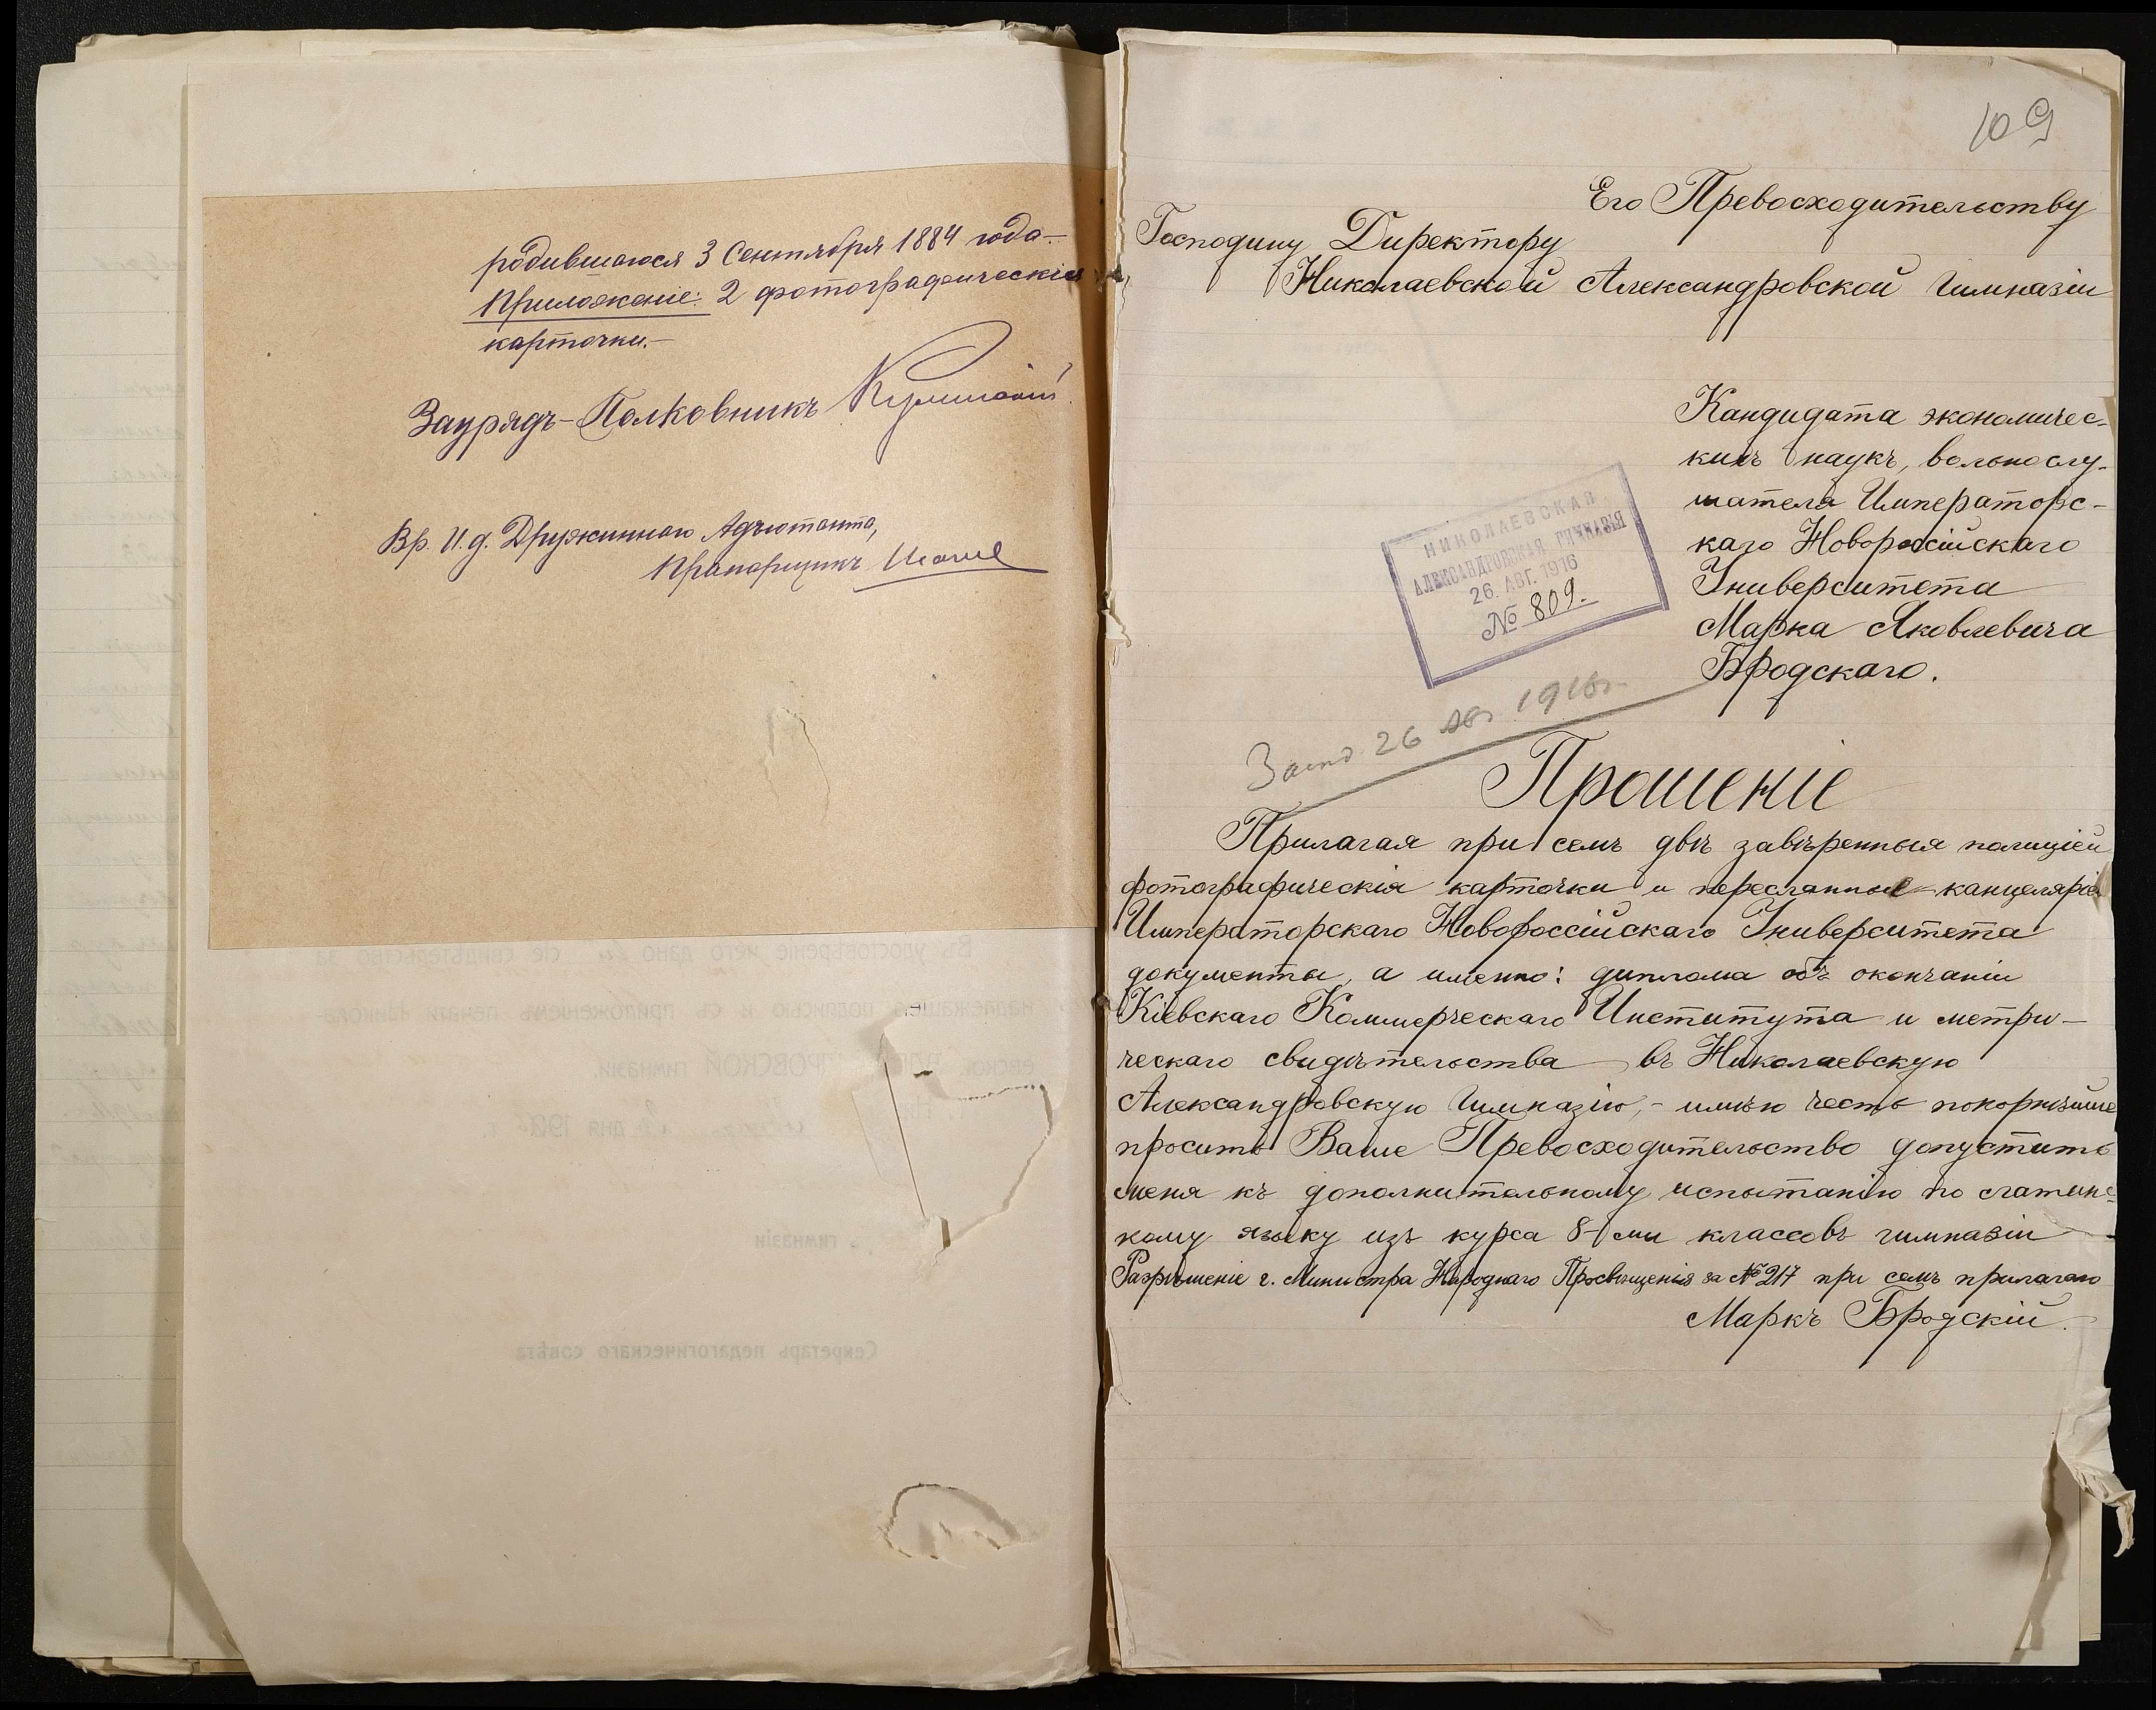 родившагося 3 Сентября 1884 года.—
Приложеніе: 2 фотографическія
карточки.—
Заурядъ-Полковникъ
Вр. И. д. Дружиннаго Адъютанта,
Прапорщикъ
За удостовѣреніе чего дано сіе свидѣтельство за
надлежащею подписью и съ приложеніемъ печати Никола-
гимназіи.
дня 190 г.
гимназіи
Секретарь педагогическаго совѣта
109
Его Превосходительству
Господину Директору
Николаевской Александровской Гимназіи
Кандидата экономичес-
кихъ наукъ, вольнослу-
шателя Императорс-
каго Новороссійскаго
Университета
Марка Яковлевича
Бродскаго.
НИКОЛАЕВСКАЯ
АЛЕКСАНДРОВСКАЯ ГИМНАЗІЯ
26. АВГ. 1916
№ 809.
26 Авг 1916 г.
Прошеніе
Прилагая при семъ двѣ завѣренныя полиціей
фотографическія карточки и пересланные канцеляріей
Императорскаго Новороссійскаго Университета
документы, а именно: диплома объ окончаніи
Кіевскаго Коммерческаго Института и метри-
ческаго свидѣтельства въ Николаевскую
Александровскую Гимназію,- имѣю честь покорнѣйше
просить Ваше Превосходительство допустить
меня къ дополнительному испытанію по латинс-
кому языку изъ курса 8-ми классовъ гимназіи
Разрѣшеніе г. Министра Народнаго Просвѣщенія за № 217 при семъ прилагаю
Маркъ Бродскій.